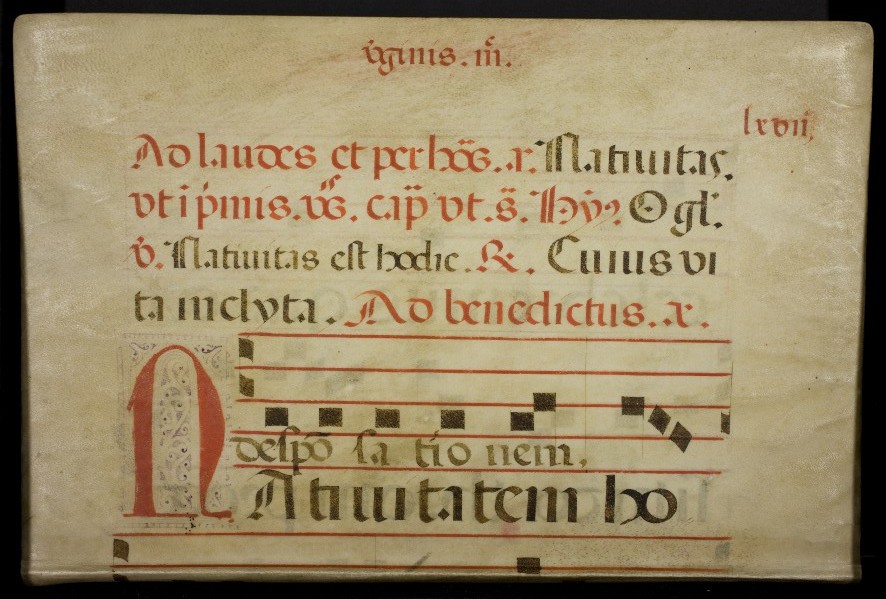 v̓ginis. m̃.
lxvii,
Ad laudes et per hõs. a. Natiuitas.
vt i p̓mis. vs̃. cap̃ vt. s̃. Hỹ. O gl̃.
v̓. Natiuitas est hodie. R. Cuius vi
ta inclyta. Ad benedictus. a.
despõ sa tio nem,
NAtiuitatem ho